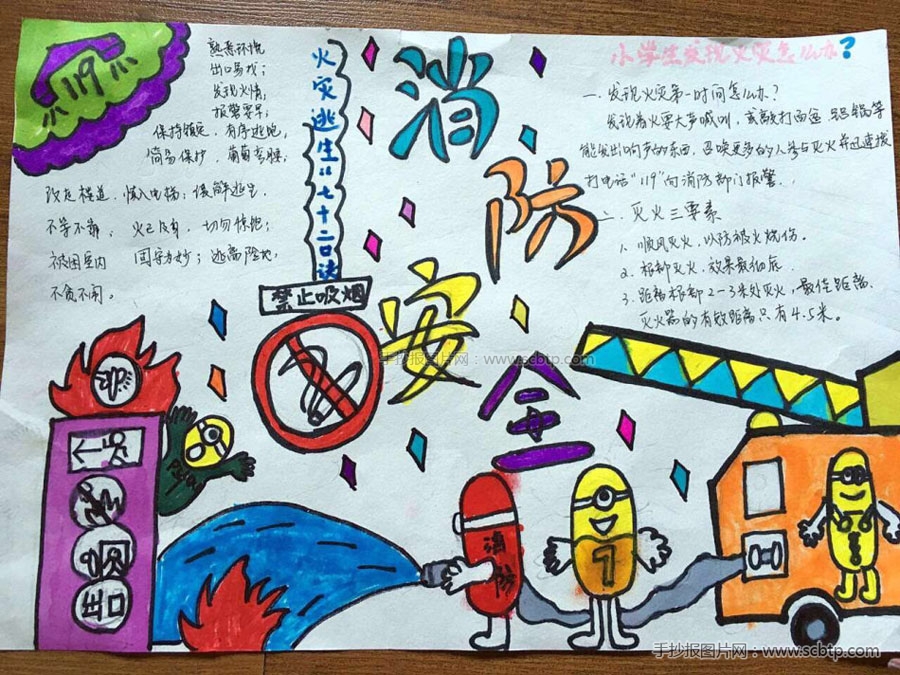 119
熟悉环境
出口易找；
发现火情；
报警要早；
保持镇定，有序逃跑，
简易保护，匍匐弯腰；
改走楼道，慎入电梯；缓解逃生
不等不靠；火已及身，切勿惊跑；
被困室内；固守为妙；逃离险地，
不贪不闹。
火灾逃生口诀
禁止吸烟
消防安全
小学生发现火灾怎么办？
一、发现火灾第一时间怎么办？
发现着火要大声喊叫，或敲打面盆、铝锅等
能发出响声的东西，召唤更多的人参与灭火并迅速拨
打电话"119"向消防部门报警。
二、灭火三要素
1、顺风灭火，以防被火烧伤。
2、根部灭火，效果最彻底
3、距离根部2-3米处灭火，最佳距离，
灭火器的有效距离只有4.5米。
手抄报图片网：www.scbtp.com
出口
消防
7
手抄报图片网：www.scbtp.com